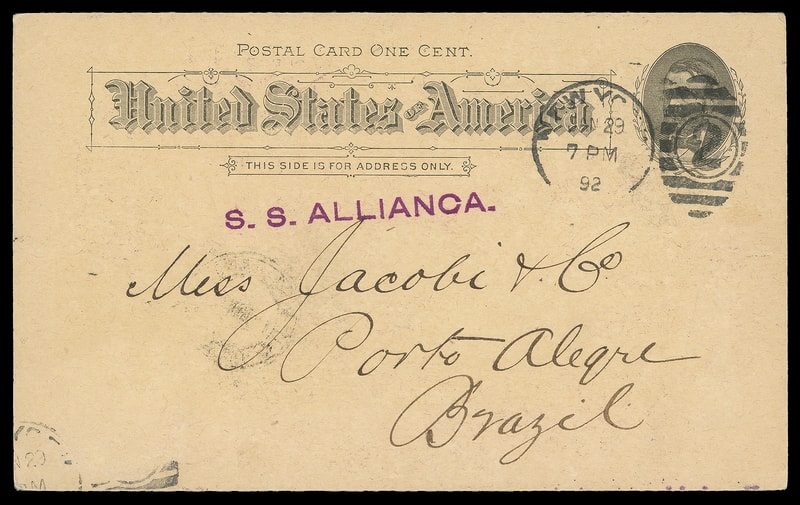 POSTAL CARD ONE CENT.
United States of America
THIS SIDE IS FOR ADDRESS ONLY.
NEW YO
N 29
7 PM
92
2
S. S. ALLIANCA.
Mess Jacobi & Co
Porto Alegre
Brazil
N 29
PM